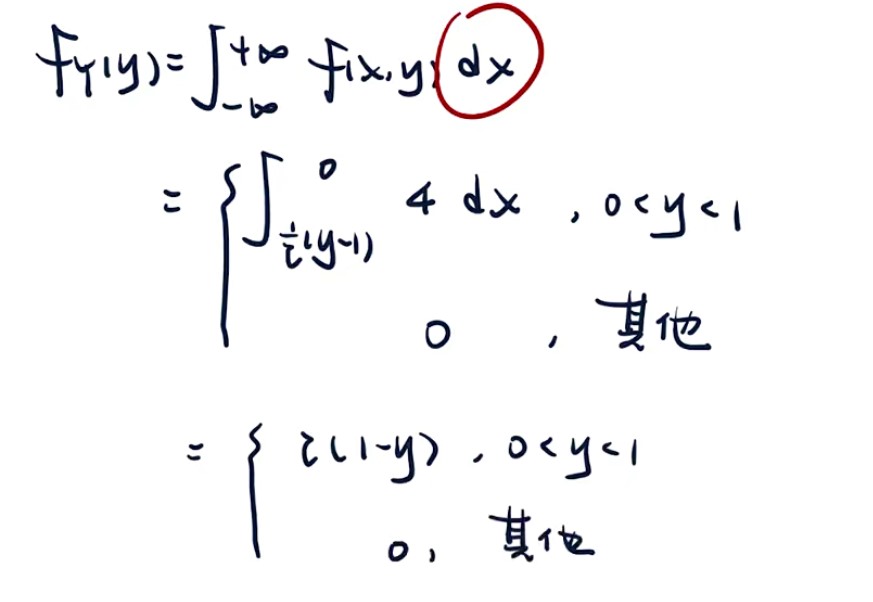 f_Y(y) = ∫_{-∞}^{+∞} f(x,y) dx
= { ∫_{½(y-1)}^{0} 4 dx , 0<y<1
0 , 其他
= { 2(1-y) , 0<y<1
0 , 其他